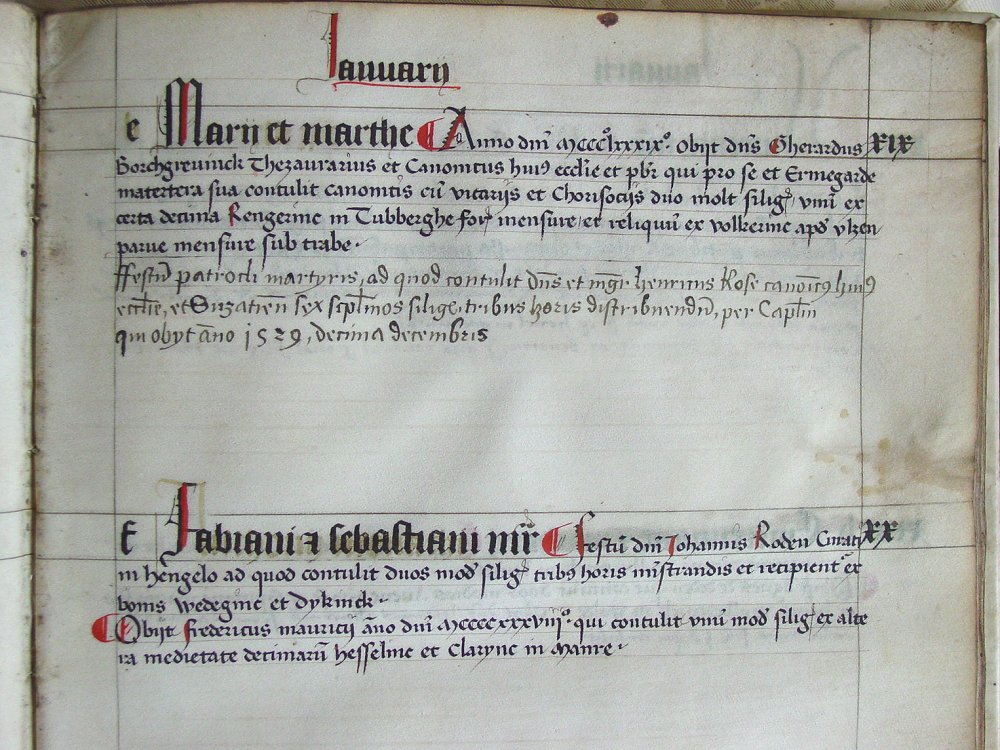 Januarij
e Marij et marthe Anno dm̄ MCCC°lxxxix°. Obijt dn̄s Gherardus XIX
Borchgreuinck Thezaurarius et Canonicus hui9 ecclīe et pb̄r qui pro se et Ermegarde
matertera sua contulit canonicis cū vicarijs et Chorisocijs duo molt siliḡ, vnū ex
certa decima Rengerinc in Tubberghe for̄ mensure, et reliquū ex volkerinc apd̄ vlzen,
parue mensure sub trabe.
Ffestū patrocli martyris, ad quod contulit Dn̄s et mgr̄ henricus Rose canōic9 hui9
ecclīe, et Suzatieñ sex scp̄linos siliḡ, tribus horis distribuendū, per Capl̄m
qui obyt āno 1529, decima decembris
f Fabiani et sebastiani mr̄ Festū dm̄ Johannis Roden Curati XX
in hengelo ad quod contulit duos mod̄ siliḡ trib9 horis mīstrandis et recipient̄ ex
bonis wedeginc et dykinck.
Obijt fredericus mauricij āno dm̄ MCCCCxxxviij°. qui contulit vnū mod̄ siliḡ ex alte
ra medietate decimarū hesselinc et Clarync in Manre.